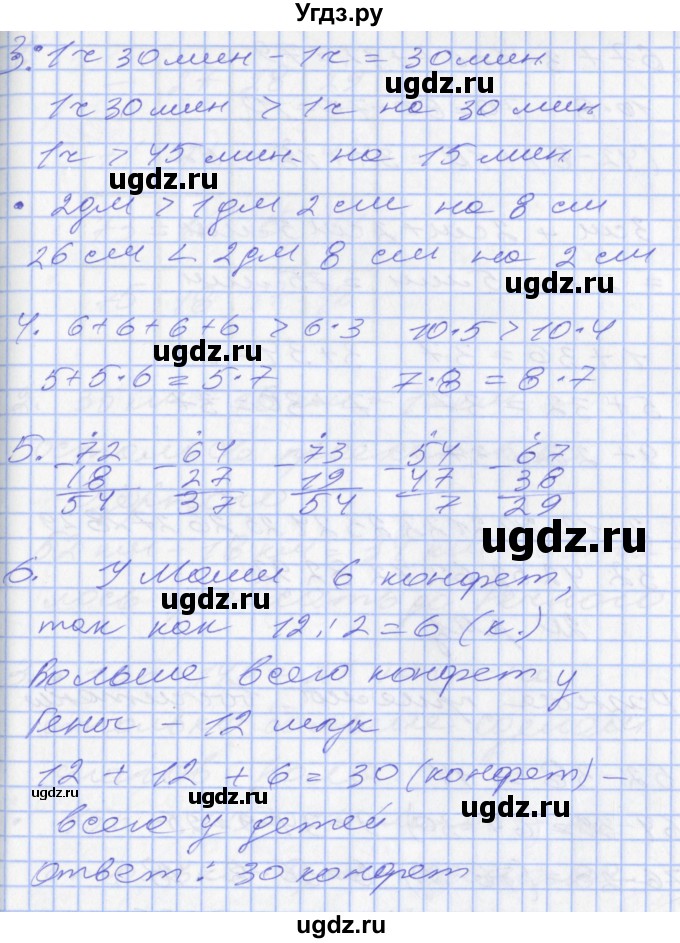 Угдз.ру
3. • 1ч 30 мин – 1ч = 30 мин.
1ч 30 мин > 1ч на 30 мин
1ч > 45 мин. на 15 мин
• 2дм > 1дм 2 см на 8 см
26 см < 2дм 8 см на 2 см
4. 6+6+6+6 > 6·3 10·5 > 10·4
5+5·6 = 5·7 7·8 = 8·7
5. 72 – 64 – 73 – 54 – 67
– 18 27 19 47 38
54 37 54 7 29
6. У Маши 6 конфет,
так как 12:2=6 (к.)
Больше всего конфет у
Гены – 12 штук
12 + 12 + 6 = 30 (конфет) –
всего у детей
Ответ: 30 конфет
ugdz.ru
ugdz.ru
ugdz.ru
ugdz.ru
ugdz.ru
ugdz.ru
ugdz.ru
ugdz.ru
ugdz.ru
ugdz.ru
ugdz.ru